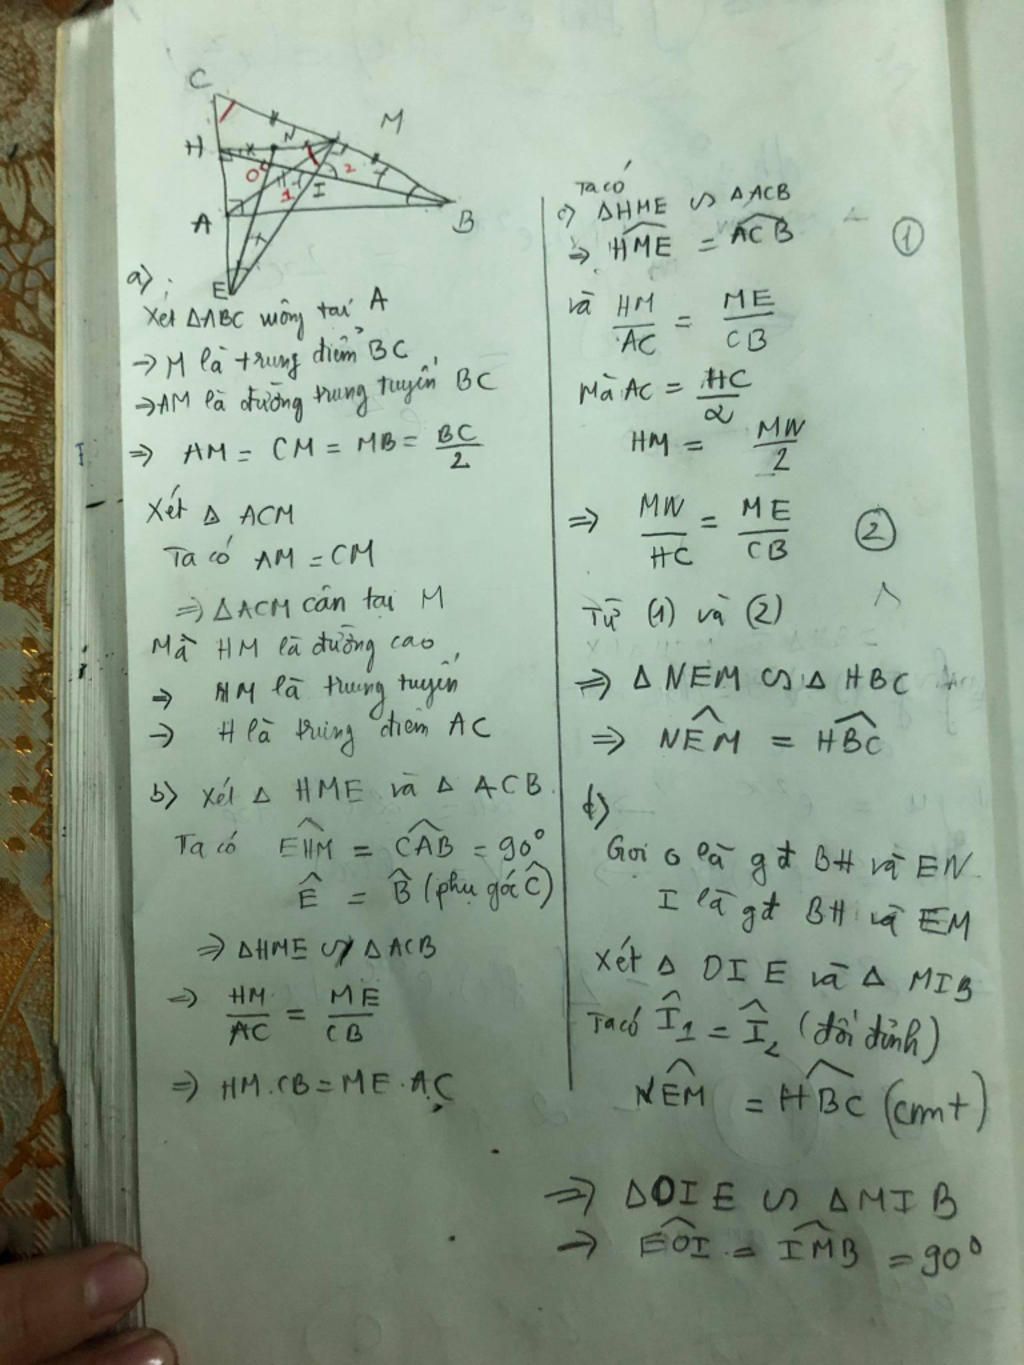 C
M
H
N
O
1
2
I
A
B
E
a)
Xét ΔABC vuông tại A
→ M là trung điểm BC
→ AM là đường trung tuyến BC
⇒ AM = CM = MB = BC/2
Xét Δ ACM
Ta có AM = CM
⇒ ΔACM cân tại M
Mà HM là đường cao
⇒ HM là trung tuyến
→ H là trung điểm AC
b) Xét Δ HME và Δ ACB
Ta có EHM = CAB = 90°
Ê = B̂ (phụ góc Ĉ)
⇒ ΔHME ∽ ΔACB
⇒ HM/AC = ME/CB
⇒ HM.CB = ME.AC
Ta có
c) ΔHME ∽ ΔACB
⇒ HME = ACB ①
và HM/AC = ME/CB
Mà AC = HC/2
HM = MN/2
⇒ MN/HC = ME/CB ②
Từ (1) và (2)
⇒ Δ NEM ∽ Δ HBC
⇒ NEM = HBC
d)
Gọi O là gđ BH và EN
I là gđ BH và EM
Xét Δ OIE và Δ MIB
Ta có Î₁ = Î₂ (đối đỉnh)
NEM = HBC (cmt)
⇒ ΔOIE ∽ ΔMIB
→ EOI = IMB = 90°